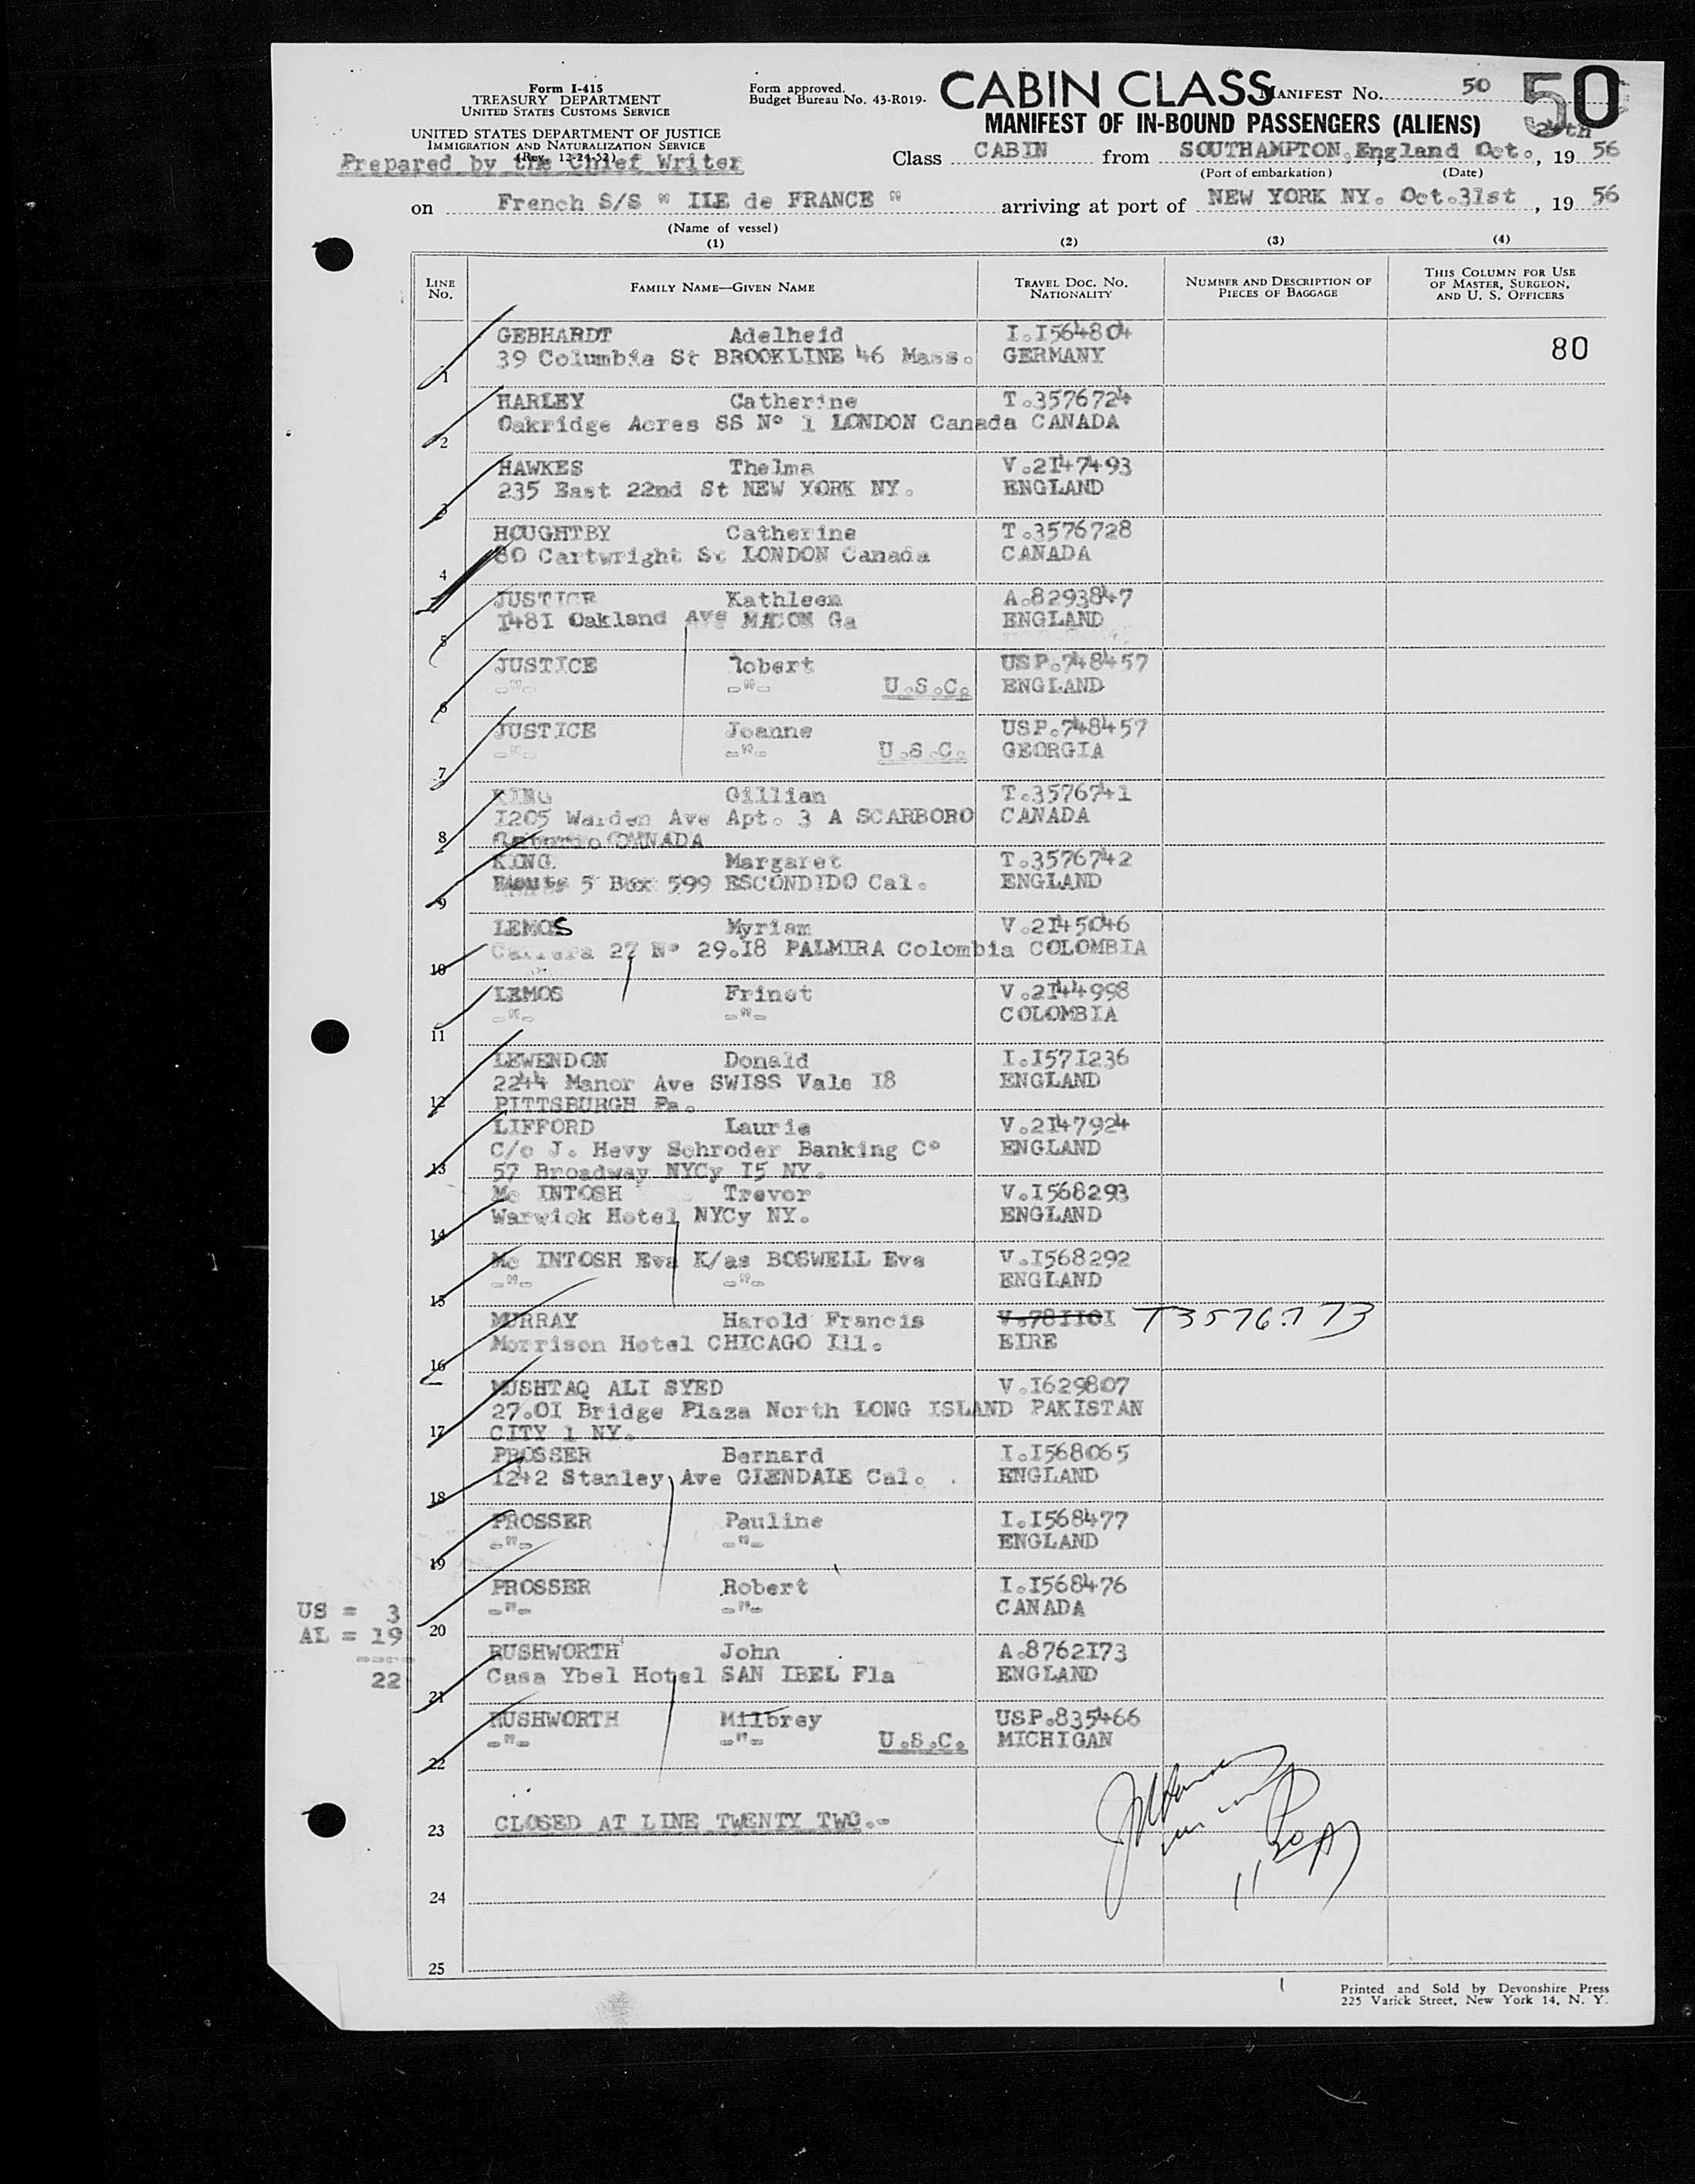 Form I-415
TREASURY DEPARTMENT
UNITED STATES CUSTOMS SERVICE
UNITED STATES DEPARTMENT OF JUSTICE
IMMIGRATION AND NATURALIZATION SERVICE
(Rev. 12-24-52)
Prepared by the Chief Writer
Form approved.
Budget Bureau No. 43-R019-
CABIN CLASS
MANIFEST No. 50
50
MANIFEST OF IN-BOUND PASSENGERS (ALIENS)
24th
Class CABIN from SOUTHAMPTON, England Oct., 19 56
(Port of embarkation) (Date)
on French S/S " ILE de FRANCE " arriving at port of NEW YORK NY. Oct.31st, 19 56
(Name of vessel)
(1) (2) (3) (4)
LINE No. FAMILY NAME—GIVEN NAME TRAVEL DOC. NO. NATIONALITY NUMBER AND DESCRIPTION OF PIECES OF BAGGAGE THIS COLUMN FOR USE OF MASTER, SURGEON, AND U. S. OFFICERS
GEBHARDT Adelheid I.I564804
39 Columbia St BROOKLINE 46 Mass. GERMANY 80
1
HARLEY Catherine T.3576724
Oakridge Acres SS N° 1 LONDON Canada CANADA
2
HAWKES Thelma V.2I47493
235 East 22nd St NEW YORK NY. ENGLAND
3
HOUGHTBY Catherine T.3576728
80 Cartwright St LONDON Canada CANADA
4
JUSTICE Kathleen A.8293847
I48I Oakland Ave MACON Ga ENGLAND
5
JUSTICE Robert USP.748457
-"- -"- U.S.C. ENGLAND
6
JUSTICE Joanne USP.748457
-"- -"- U.S.C. GEORGIA
7
KING Gillian T.3576741
I205 Warden Ave Apt. 3 A SCARBORO CANADA
8 Ontario CANADA
KING Margaret T.3576742
Route 5 Box 599 ESCONDIDO Cal. ENGLAND
9
LEMOS Myriam V.2I45046
Carrera 27 N° 29.I8 PALMIRA Colombia COLOMBIA
10
LEMOS Frinet V.2I44998
-"- -"- COLOMBIA
11
LEWENDON Donald I.I57I236
2244 Manor Ave SWISS Vale I8 ENGLAND
12 PITTSBURGH Pa.
LIFFORD Laurie V.2I47924
C/o J. Hevy Schroder Banking C° ENGLAND
13 57 Broadway NYCy I5 NY.
Mc INTOSH Trevor V.I568293
Warwick Hotel NYCy NY. ENGLAND
14
Mc INTOSH Eva K/as BOSWELL Eva V.I568292
-"- -"- ENGLAND
15
MURRAY Harold Francis V.78II0I T3576773
Morrison Hotel CHICAGO Ill. EIRE
16
MUSHTAQ ALI SYED V.I629807
27.0I Bridge Plaza North LONG ISLAND PAKISTAN
17 CITY 1 NY.
PROSSER Bernard I.I568065
I242 Stanley Ave GLENDALE Cal. ENGLAND
18
PROSSER Pauline I.I568477
-"- -"- ENGLAND
19
PROSSER Robert I.I568476
-"- -"- CANADA
20
US = 3
AL = 19
----
22
RUSHWORTH John A.8762I73
Casa Ybel Hotel SAN IBEL Fla ENGLAND
21
RUSHWORTH Milbrey USP.835466
-"- -"- U.S.C. MICHIGAN
22
23 CLOSED AT LINE TWENTY TWO.-
24
25
Printed and Sold by Devonshire Press
225 Varick Street, New York 14, N. Y.